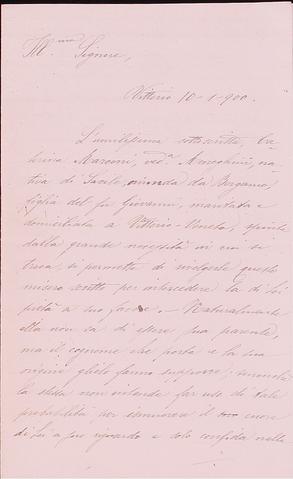 Ill.mo Signore,
Vittorio 10-1-900.
L'umilissima sottoscritta, Ca-
terina Marconi, ved.a Marchini, na-
tiva di Sacile, oriunda da Bergamo,
figlia del fu Giovanni, maritata e
domiciliata a Vittorio-Veneto, spinta
dalla grande necessità in cui si
trova, si permette di rivolgerle questo
misero scritto per intercedere la di Lei
pietà a suo favore. - Naturalmente
ella non sa di essere sua parente,
ma il cognome che porta e la sua
origine glielo fanno supporre;
la stessa non intende far uso di tale
probabilità per smuovere il cuore
di Lei a suo riguardo e solo confida nella